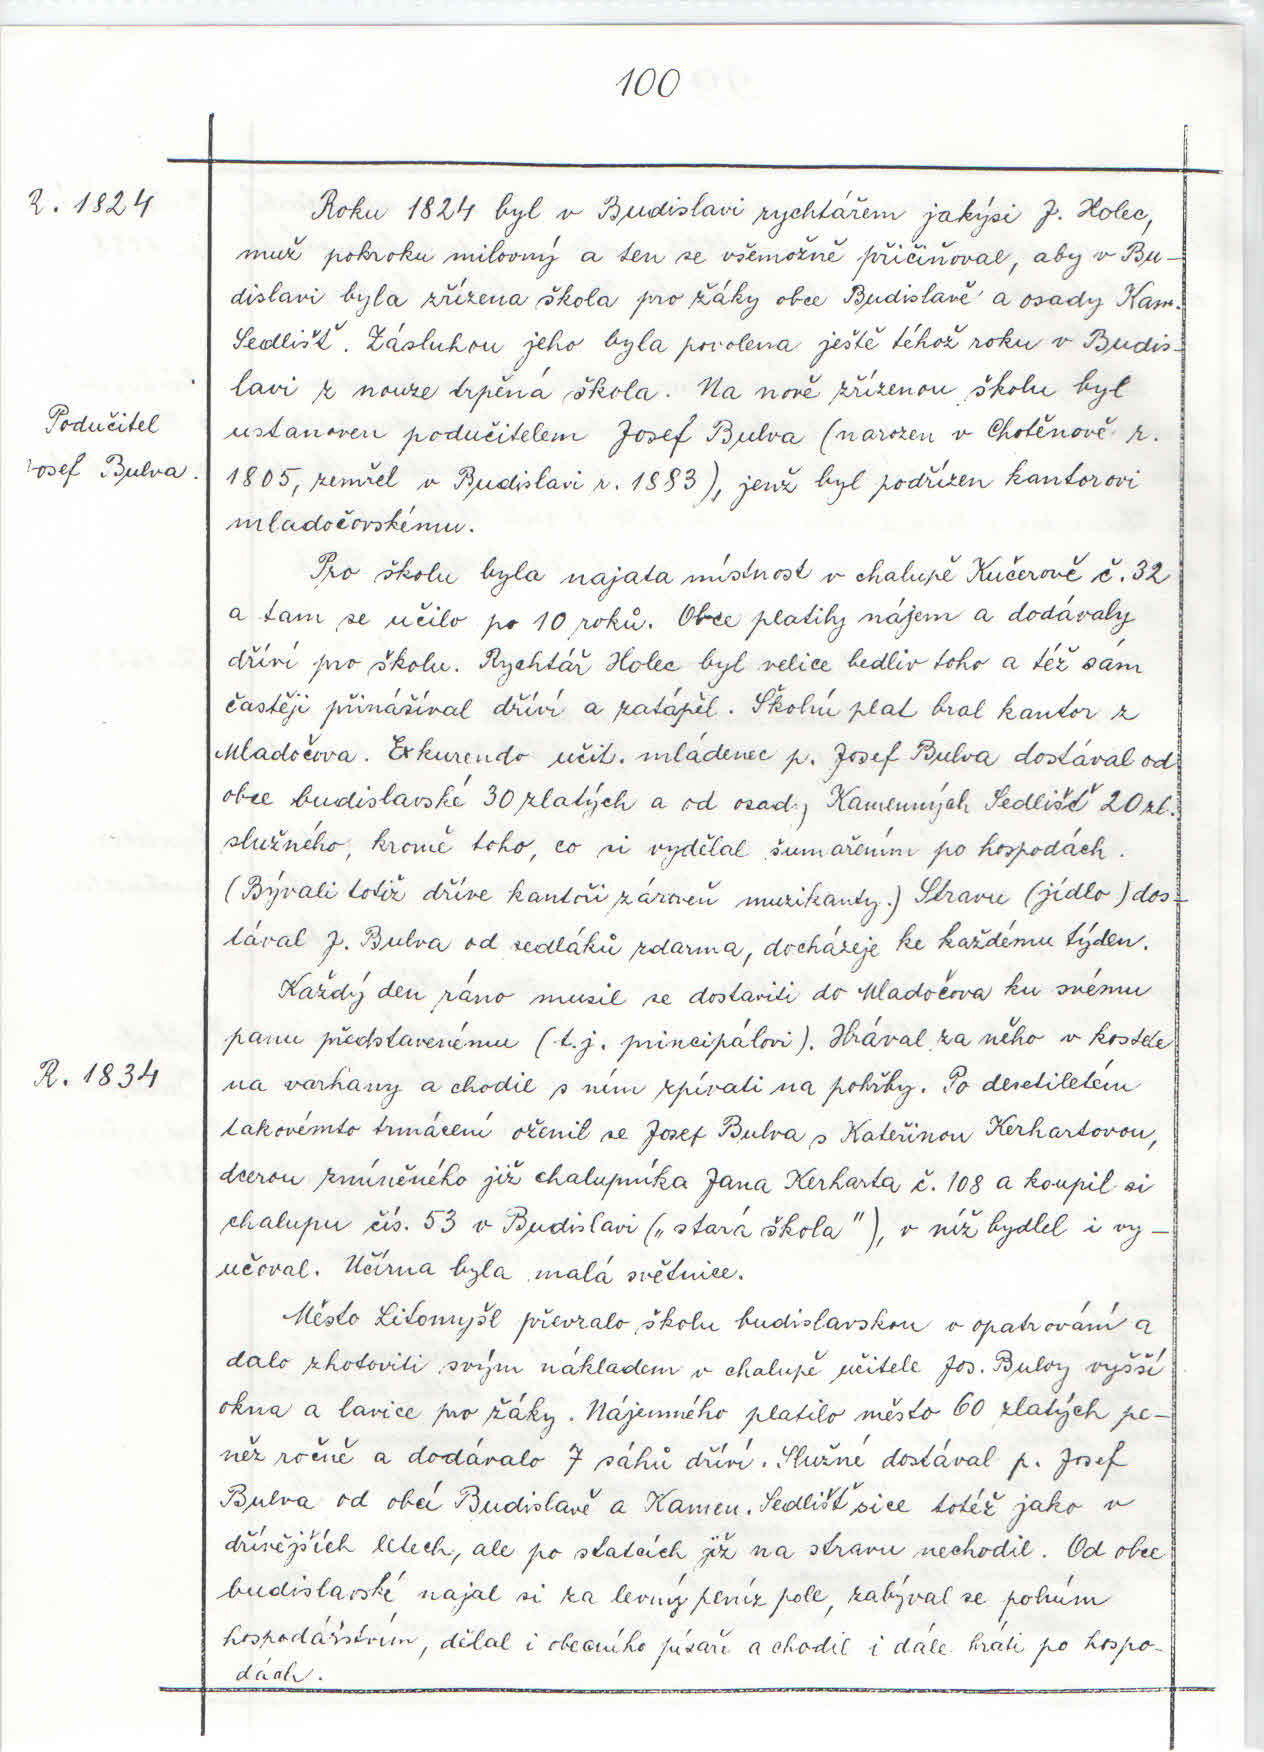 100
R. 1824
Roku 1824 byl v Budislavi rychtářem jakýsi J. Holec,
muž pokroku milovný a ten se všemožně přičiňoval, aby v Bu-
dislavi byla zřízena škola pro žáky obce Budislavě a osady Kam.
Sedlišť. Zásluhou jeho byla povolena ještě téhož roku v Budis-
lavi z nouze trpěná škola. Na nově zřízenou školu byl
Podučitel
ustanoven podučitelem Josef Bulva (narozen v Chotěnově r.
Josef Bulva.
1805, zemřel v Budislavi r. 1883), jenž byl podřízen kantorovi
mladočovskému.
Pro školu byla najata místnost v chalupě Kučerově č. 32
a tam se učilo po 10 roků. Obce platily nájem a dodávaly
dříví pro školu. Rychtář Holec byl velice bedliv toho a též sám
častěji přinášíval dříví a zatápěl. Školní plat bral kantor z
Mladočova. Exkurendo učit. mládenec p. Josef Bulva dostával od
obce budislavské 30 zlatých a od osady Kamenných Sedlišť 20 zl.
služného, kromě toho, co si vydělal šumařením po hospodách.
(Bývali totiž dříve kantoři zároveň muzikanty.) Stravu (jídlo) dos-
tával J. Bulva od sedláků zdarma, docházeje ke každému týden.
Každý den ráno musil se dostaviti do Mladočova ku svému
panu představenému (t.j. principálovi). Hrával za něho v kostele
R. 1834
na varhany a chodil s ním zpívati na pohřby. Po desetiletém
takovémto trmácení oženil se Josef Bulva s Kateřinou Kerhartovou,
dcerou zmíněného již chalupníka Jana Kerharta č. 108 a koupil si
chalupu čís. 53 v Budislavi („stará škola"), v níž bydlel i vy-
učoval. Učírna byla malá světnice.
Město Litomyšl převzalo školu budislavskou v opatrování a
dalo zhotoviti svým nákladem v chalupě učitele Jos. Bulvy vyšší
okna a lavice pro žáky. Nájemného platilo město 60 zlatých pe-
něz ročně a dodávalo 7 sáhů dříví. Služné dostával p. Josef
Bulva od obcí Budislavě a Kamen. Sedlišť sice totéž jako v
dřívějších letech, ale po statcích již na stravu nechodil. Od obce
budislavské najal si za levný peníz pole, zabýval se polním
hospodářstvím, dělal i obecního písaře a chodil i dále hráti po hospo-
dách.